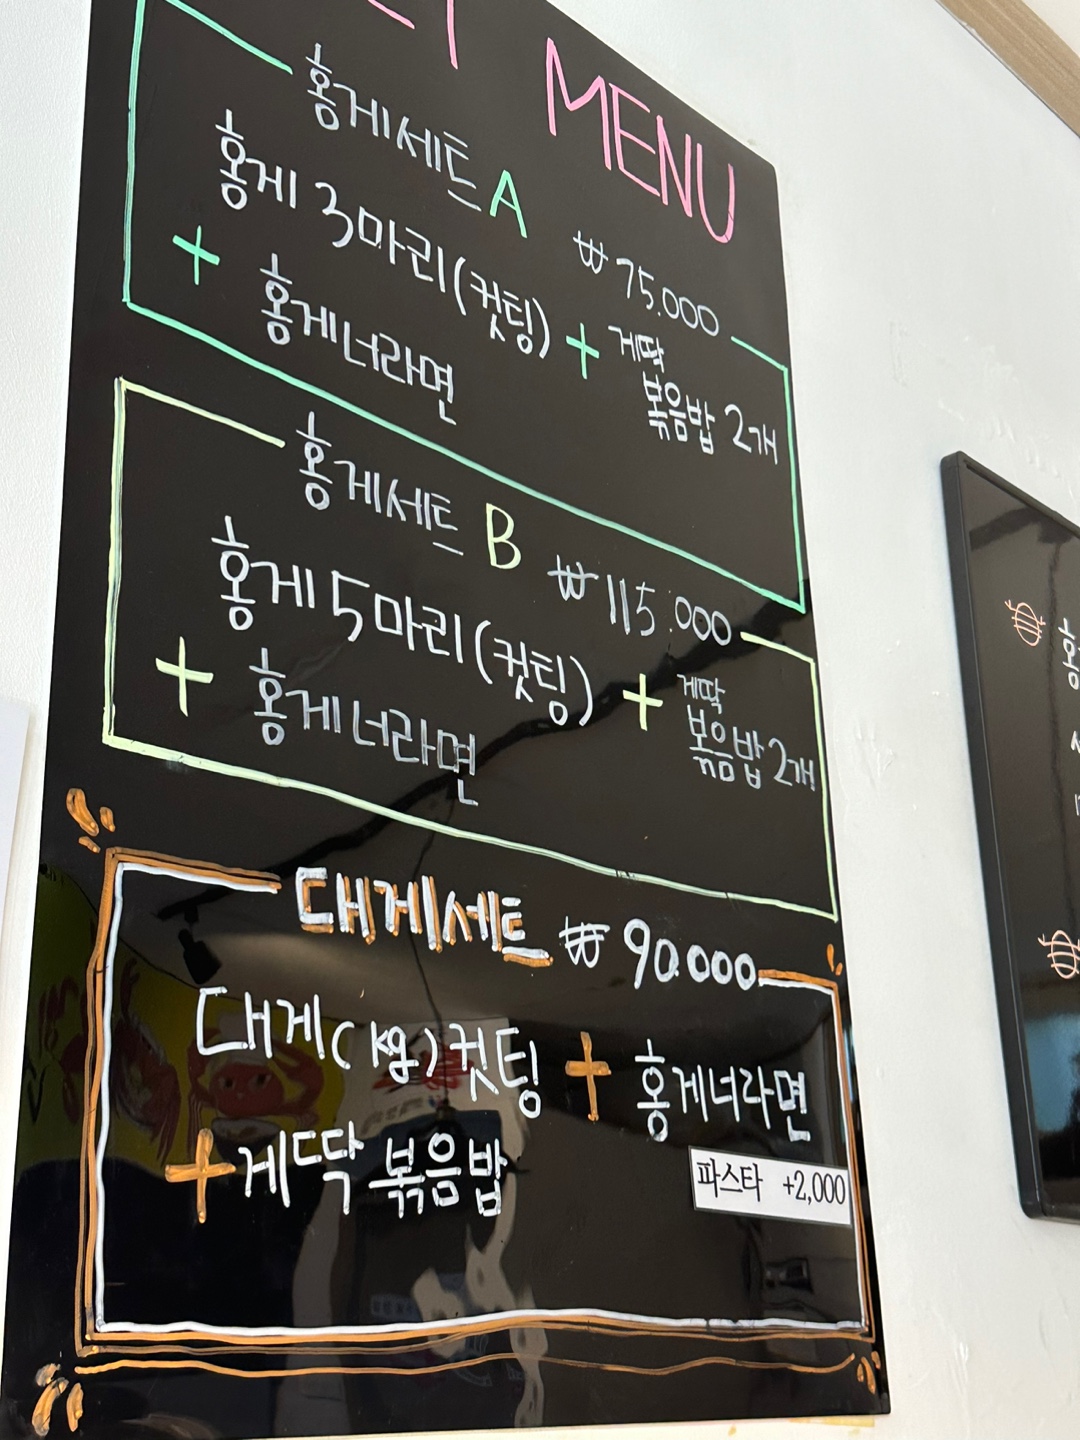 MENU
홍게세트 A ₩75.000
홍게 3마리(컷팅) + 게딱
볶음밥 2개
+ 홍게너라면
홍게세트 B ₩115.000
홍게 5마리(컷팅) + 게딱
볶음밥 2개
+ 홍게너라면
대게세트 ₩90.000
대게(kg)컷팅 + 홍게너라면
+ 게딱 볶음밥
파스타 +2,000